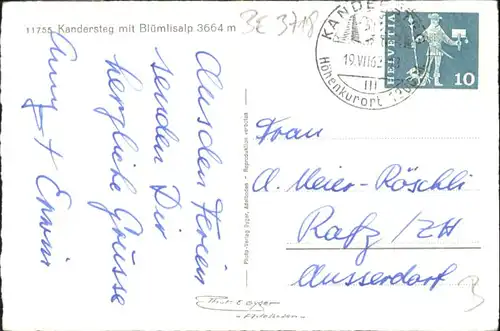 11755 Kandersteg mit Blümlisalp 3664 m
BE 3718
Aus den Ferien
senden Dir
herzliche Grüsse
Anny + Erwin
Photo-Verlag Gyger, Adelboden - Reproduktion verboten
KANDERSTEG
19.VII.62
Höhenkurort 1200 m
HELVETIA
10
Frau
A. Meier-Röschli
Rafz/ZH
Ausserdorf